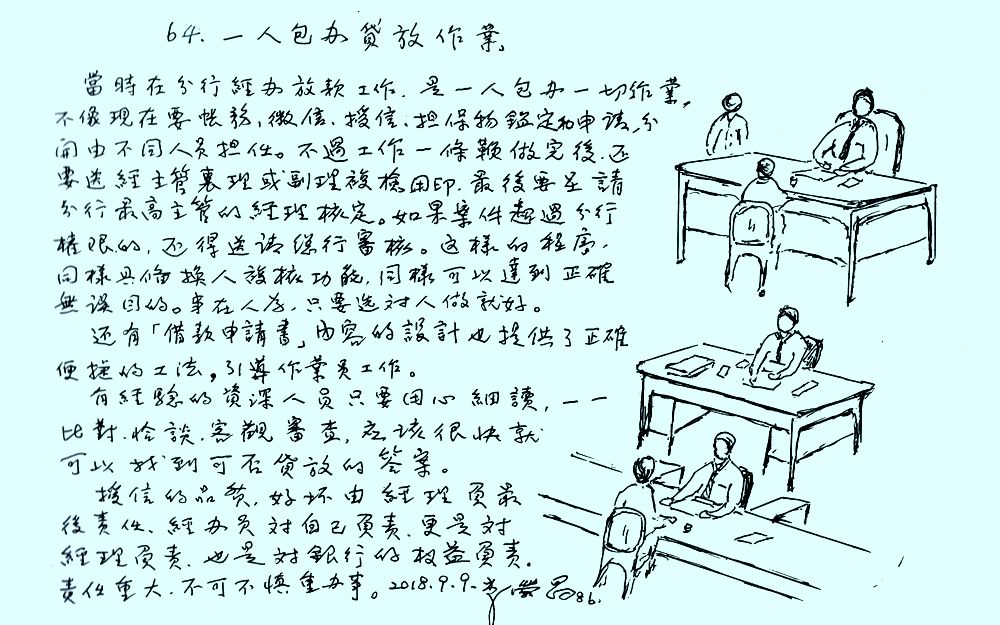 64. 一人包办貸放作業
當時在分行經办放款工作.是一人包办一切作業,
不像現在要帐務、徵信、授信、担保物鑑定和申請,分
開由不同人员担任。不過工作一條鞭做完後.还
要送經主管襄理或副理複檢用印.最後要呈請
分行最高主管的經理核定。如果案件超過分行
權限的,还得送請總行審核。这樣的程序,
同樣具俻換人複核功能,同樣可以達到正確
無误目的。事在人为,只要选对人做就好。
还有「借款申請書」內容的設計也提供了正確
便捷的工法,引導作業员工作。
有經驗的資深人员只要用心細讀,一一
比對.恰談.客觀審查,应该很快就
可以找到可否貸放的答案。
授信的品質,好坏由經理負最
後责任、經办员対自己負責.更是対
經理負責.也是対銀行的权益負責.
責任重大.不可不慎重办事。2018.9.9.
86.